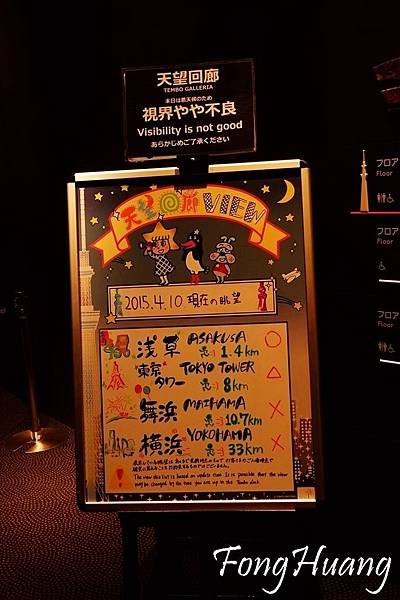 天望回廊
TEMBO GALLERIA
本日は悪天候のため
視界やや不良
Visibility is not good
あらかじめご了承ください
天望回廊 VIEW
2015.4.10 現在の眺望
浅草 ASAKUSA
1.4km
"東京" TOKYO TOWER
タワー 8km
舞浜 MAIHAMA
10.7km
横浜 YOKOHAMA
33km
The view this list is based on update time. It is possible that the view
may be changed by the time you are up in the Tembo deck.
フロア
Floor
フロア
Floor
フロア
Floor
FongHuang